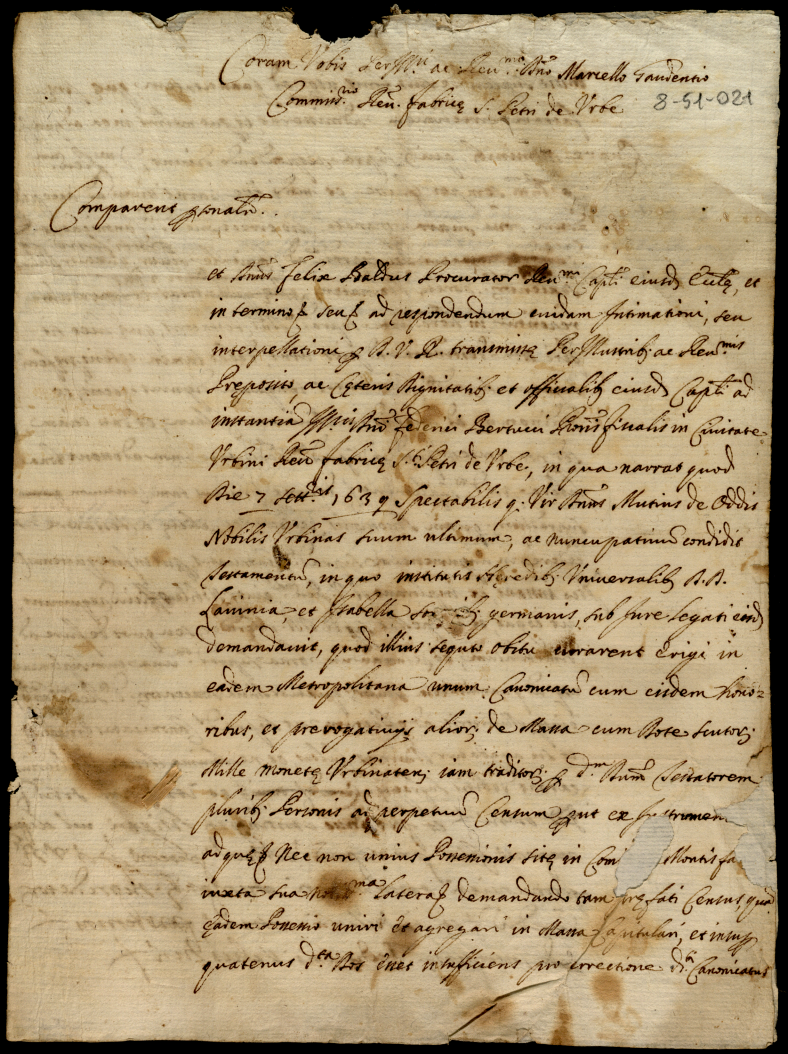 Coram Vobis PerIll.ri ac Reu.mo Dno Marcello Gaudentio
Commiss.rio Reu. fabricę S. Petri de Vrbe
8-51-021
Comparent psonalr.
et Dnus felix Baldus Procurator Reu.mi Capli eiusd Eccle, et
in termino seu ad respondendum cuidam Intimationi, seu
interpellationi p D. V. R. transmissę PerIllustrib; ac Reu.mis
Pręposito, ac Cęteris Dignitatib; et officialib; eiusd Capli ad
instantia Dni federici Bertucci fiscalis in Ciuitate
Vrbini Reu fabricę S.ti Petri de Vrbe, in qua narrat quod
Die 7 1639 Spectabilis q. Vir Dnus Mutius de Oddis
Nobilis Vrbinas suum ultimum, ac nuncupatiuu condidit
Testamentu, in quo institutis Hęredib; Vniuersalib; D.D.
Lauinia, et Isabella germanis, sub Jure legati eisd
demandauit, quod illius sequto obitu curarent erigi in
eadem Metropolitana unum Canonicatu cum eisdem hono=
ribus, et prerogatiuijs alior; de Massa cum Dote scutor;
Mille monetę Vrbinaten; iam traditor; p d.m Dnum Testatorem
plurib; Personis ad perpetuu Censum, put ex Instrumen
ad quę Nec non unius Possessionis sitę in Com Montis fa
iuxta sua latera demandando tam pręfati Census quod
ęadem Possessio uniri et agregari in Massa Capitulari, et insup
quatenus d.ta Dos esset insufficiens pro errectione d.i Canonicatus